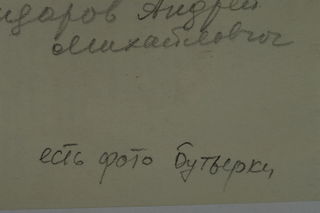 ндаров Андрей
Михайлович
есть фото Бутырки